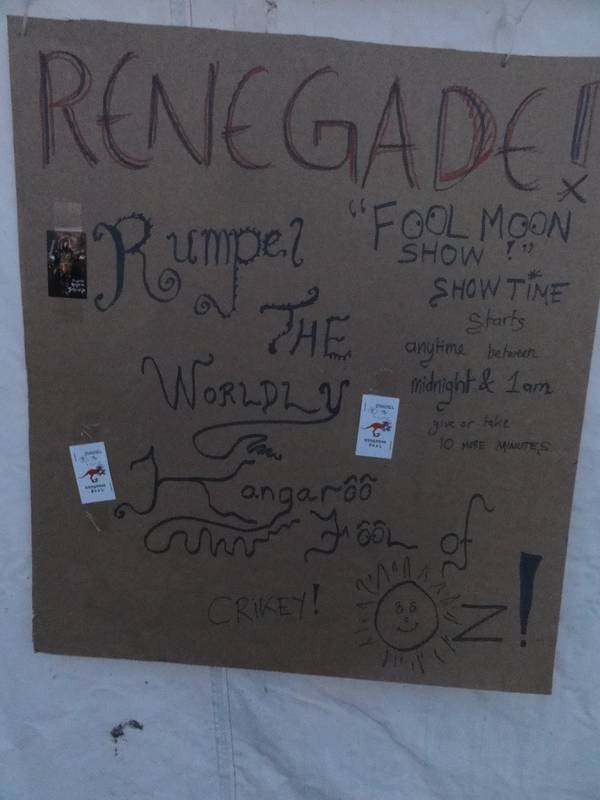 RENEGADE!
Rumpel
THE
WORLDLY
Kangarôô
Fôôl of
OZ!
CRIKEY!
"FOOL MOON
SHOW!"
SHOWTIME
Starts
anytime between
midnight & 1am
give or take
10 MORE MINUTES.